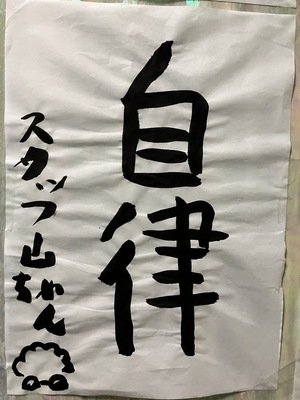 自律
スタッフ山ちゃん